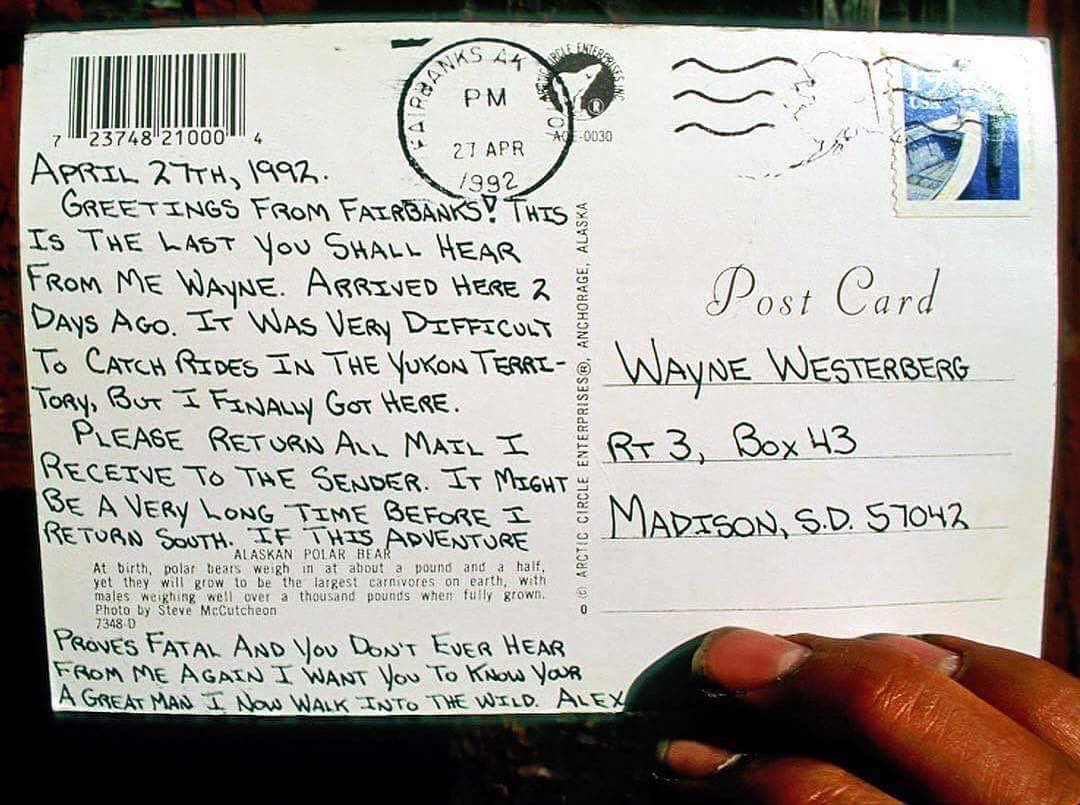 7 23748 21000 4
FAIRBANKS AK
PM
27 APR
1992
ARCTIC CIRCLE ENTERPRISES INC
®
ACE-0030
USA
APRIL 27TH, 1992.
GREETINGS FROM FAIRBANKS! THIS
IS THE LAST YOU SHALL HEAR
FROM ME WAYNE. ARRIVED HERE 2
DAYS AGO. IT WAS VERY DIFFICULT
TO CATCH RIDES IN THE YUKON TERRI-
TORY, BUT I FINALLY GOT HERE.
PLEASE RETURN ALL MAIL I
RECEIVE TO THE SENDER. IT MIGHT
BE A VERY LONG TIME BEFORE I
RETURN SOUTH. IF THIS ADVENTURE
ALASKAN POLAR BEAR
At birth, polar bears weigh in at about a pound and a half,
yet they will grow to be the largest carnivores on earth, with
males weighing well over a thousand pounds when fully grown.
Photo by Steve McCutcheon
7348-D
PROVES FATAL AND YOU DON'T EVER HEAR
FROM ME AGAIN I WANT YOU TO KNOW YOUR
A GREAT MAN I NOW WALK INTO THE WILD. ALEX
0 © ARCTIC CIRCLE ENTERPRISES®, ANCHORAGE, ALASKA
Post Card
WAYNE WESTERBERG
RT 3, BOX 43
MADISON, S.D. 57042